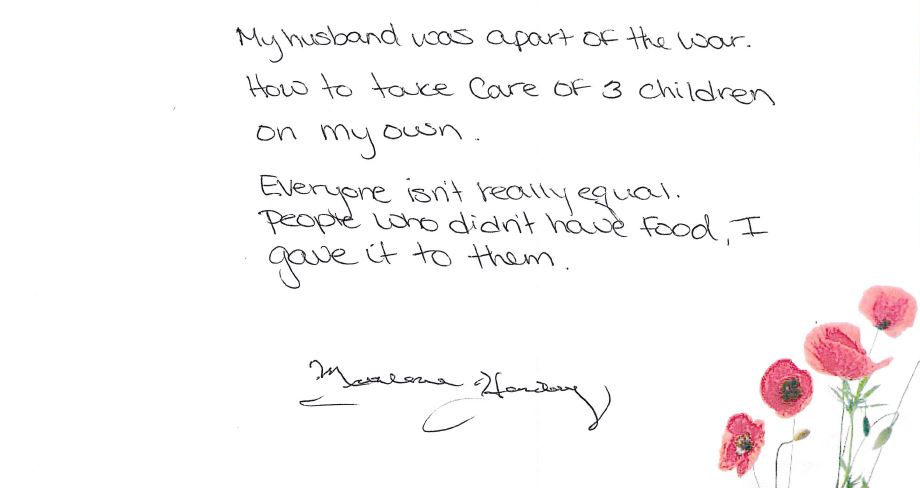 My husband was apart of the war.
How to take Care of 3 children
on my own.
Everyone isn't really equal.
People who didn't have food, I
gave it to them.